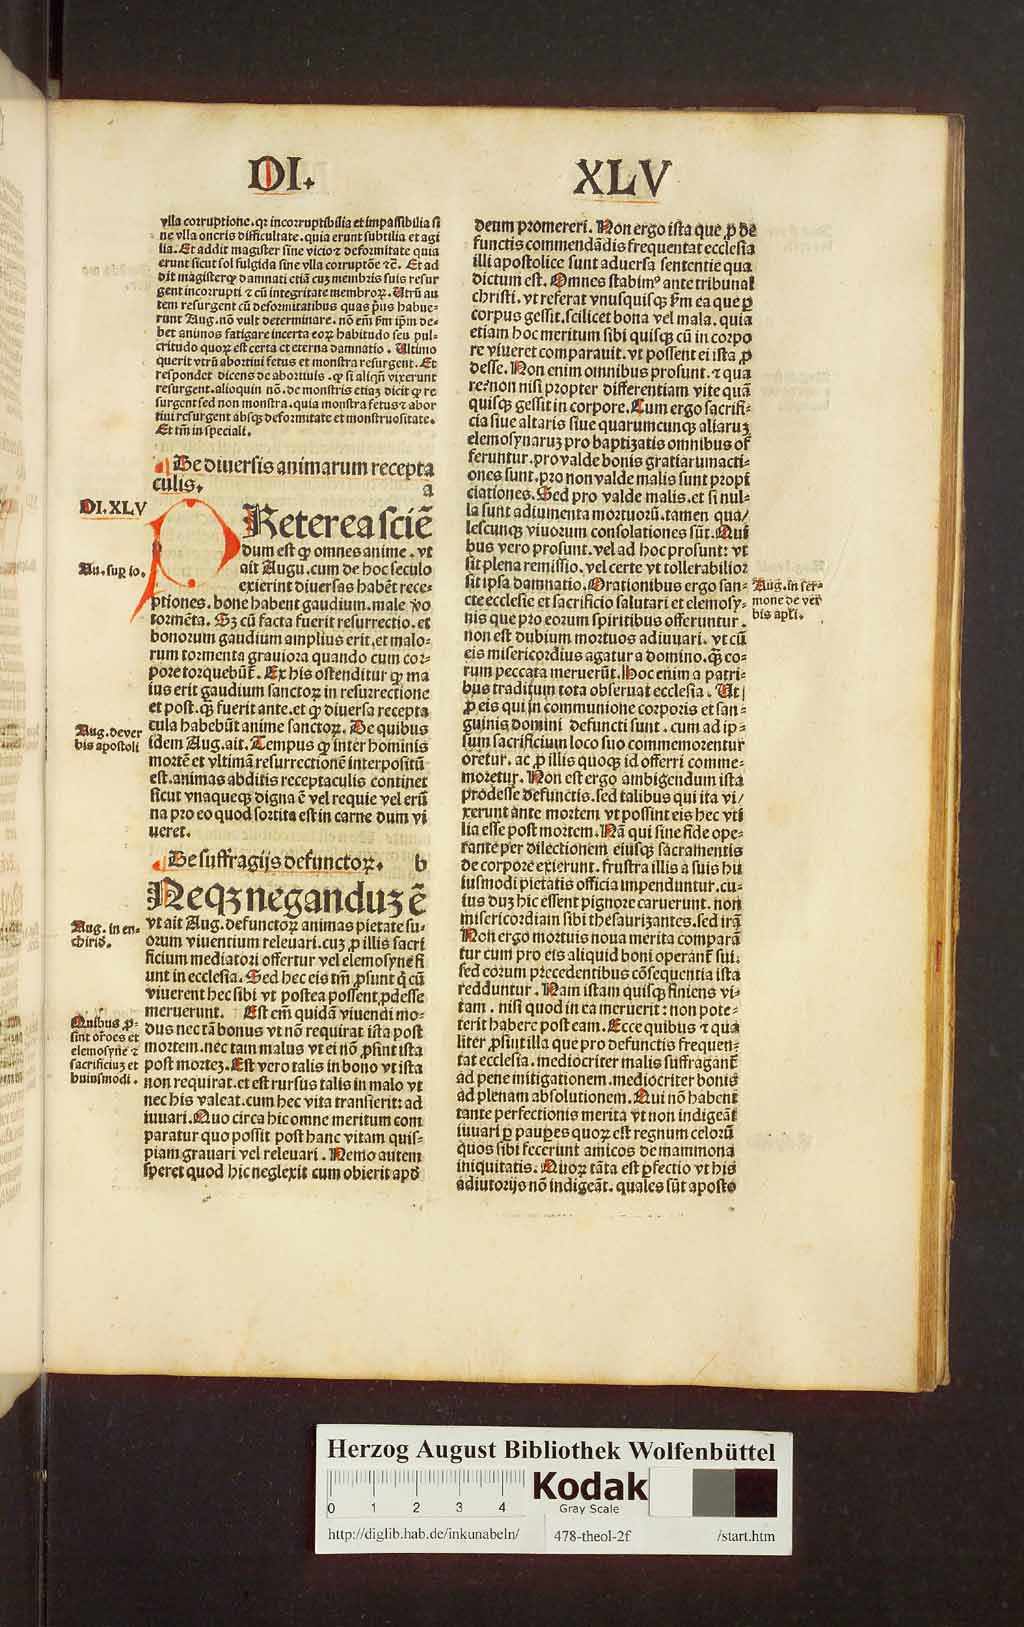 DI.
XLV
vlla corruptione. qꝛ incorruptibilia et impassibilia si
ne vlla oneris difficultate. quia erunt subtilia et agi
lia. Et addit magister sine vicio ⁊ deformitate quia
erunt sicut sol fulgida sine vlla corruptōe ⁊c̄. Et ad
dit magister ꝙ damnati etiā cuꝫ membris suis resur
gent incorrupti ⁊ cū integritate membroꝝ. Utrū au
tem resurgent cū deformitatibus quas pꝰus habue-
runt Aug. nō vult determinare. nō em̄ ẜm ip̄m de-
bet animos fatigare incerta eoꝝ habitudo seu pul-
critudo quoꝝ est certa et eterna damnatio. Ultimo
querit vtrū abortiui fetus et monstra resurgent. Et
respondet dicens de abortiuis. ꝙ si aliqn̄ vixerunt
resurgent. alioquin nō. de monstris etiaꝫ dicit ꝙ re
surgent sed non monstra. quia monstra fetus ⁊ abor
tiui resurgent absqꝫ deformitate et monstruositate.
Et tm̄ in speciali.
De diuersis animarum recepta
culis. a
DI. XLV
PReterea sciē
dum est ꝙ omnes anime. vt
Au. suꝑ io.
ait Augu. cum de hoc seculo
exierint diuersas habēt rece-
ptiones. bone habent gaudium. male ꝟo
tormēta. Sꝫ cū facta fuerit resurrectio. et
bonorum gaudium amplius erit. et malo-
rum tormenta grauiora quando cum cor-
pore torquebūt̄. Ex his ostenditur ꝙ ma
ius erit gaudium sanctoꝝ in resurrectione
et post. qꝫ fuerit ante. et ꝙ diuersa recepta
cula habebūt anime sanctoꝝ. De quibus
Aug. de ver
bis apostoli
idem Aug. ait. Tempus ꝙ inter hominis
mortē et vltimā resurrectionē interpositū
est. animas abditis receptaculis continet
sicut vnaqueqꝫ digna ē vel requie vel erū
na pro eo quod sortita est in carne dum vi
ueret.
De suffragijs defunctoꝝ. b
Neqꝫ neganduꝫ ē
Aug. in en-
chirid̄.
vt ait Aug. defunctoꝝ animas pietate su-
orum viuentium releuari. cuꝫ ꝓ illis sacri
ficium mediatori offertur vel elemosyne fi
unt in ecclesia. Sed hec eis tm̄ ꝓsunt q̇ cū
viuerent hec sibi vt postea possent ꝓdesse
meruerunt. Est em̄ quidā viuendi mo-
Quibus ꝓ-
sint or̄oes et
elemosyne ⁊
sacrificiuꝫ et
huiusmodi.
dus nec tā bonus vt nō requirat ista post
mortem. nec tam malus vt ei nō ꝓsint ista
post morteꝫ. Est vero talis in bono vt ista
non requirat. et est rursus talis in malo vt
nec his valeat. cum hec vita transierit: ad
iuuari. Quo circa hic omne meritum com
paratur quo possit post hanc vitam quis-
piam grauari vel releuari. Nemo autem
speret quod hic neglexit cum obierit apd̄
deum promereri. Non ergo ista que ꝓ de
functis commendādis frequentat ecclesia
illi apostolice sunt aduersa sententie qua
dictum est. Omnes stabimꝰ ante tribunal
christi. vt referat vnusquisqꝫ ẜm ea que ꝑ
corpus gessit. scilicet bona vel mala. quia
etiam hoc meritum sibi quisqꝫ cū in corpo
re viueret comparauit. vt possent ei ista ꝓ
desse. Non enim omnibus prosunt. ⁊ qua
re? non nisi propter differentiam vite quā
quisqꝫ gessit in corpore. Cum ergo sacrifi-
cia siue altaris siue quarumcunqꝫ aliaruꝫ
elemosynaruꝫ pro baptizatis omnibus of
feruntur. pro valde bonis gratiarum acti-
ones sunt. pro non valde malis sunt propi
ciationes. Sed pro valde malis. et si nul-
la sunt adiumenta mortuorū. tamen qua/
lescunqꝫ viuorum consolationes sūt. Qui
bus vero prosunt. vel ad hoc prosunt: vt
sit plena remissio. vel certe vt tollerabilior
sit ipsa damnatio. Orationibus ergo san-
Aug. in ser-
mone de ver
bis apl̄i.
cte ecclesie et sacrificio salutari et elemosy-
nis que pro eorum spiritibus offeruntur.
non est dubium mortuos adiuuari. vt cū
eis misericordius agatur a domino. qꝫ eo-
rum peccata meruerūt. Hoc enim a patri-
bus traditum tota obseruat ecclesia. Ut
ꝓ eis qui in communione corporis et san-
guinis domini defuncti sunt. cum ad ip-
sum sacrificium loco suo commemorentur
oretur. ac ꝓ illis quoqꝫ id offerri comme-
moretur. Non est ergo ambigendum ista
prodesse defunctis. sed talibus qui ita vi/
xerunt ante mortem vt possint eis hec vti
lia esse post mortem. Nā qui sine fide ope-
rante per dilectionem eiusqꝫ sacramentis
de corpore exierunt. frustra illis a suis hu
iusmodi pietatis officia impenduntur. cu-
ius duꝫ hic essent pignore caruerunt. non
misericordiam sibi thesaurizantes. sed irā
Non ergo mortuis noua merita comparā
tur cum pro eis aliquid boni operant̄ sui.
sed eorum precedentibus cōsequentia ista
redduntur. Nam istam quisqꝫ finiens vi-
tam. nisi quod in ea meruerit: non pote-
terit habere post eam. Ecce quibus ⁊ qua
liter ꝓsunt illa que pro defunctis frequen-
tat ecclesia. mediocriter malis suffragant̄
ad pene mitigationem. mediocriter bonis
ad plenam absolutionem. Qui nō habent
tante perfectionis merita vt non indigeāt
iuuari ꝑ pauꝑes quoꝝ est regnum celorū
quos sibi fecerunt amicos de mammona
iniquitatis. Quoꝝ tāta est ꝑfectio vt his
adiutorijs nō indigeāt. quales sūt aposto
Herzog August Bibliothek Wolfenbüttel
0 1 2 3 4
Kodak
Gray Scale
http://diglib.hab.de/inkunabeln/ 478-theol-2f /start.htm